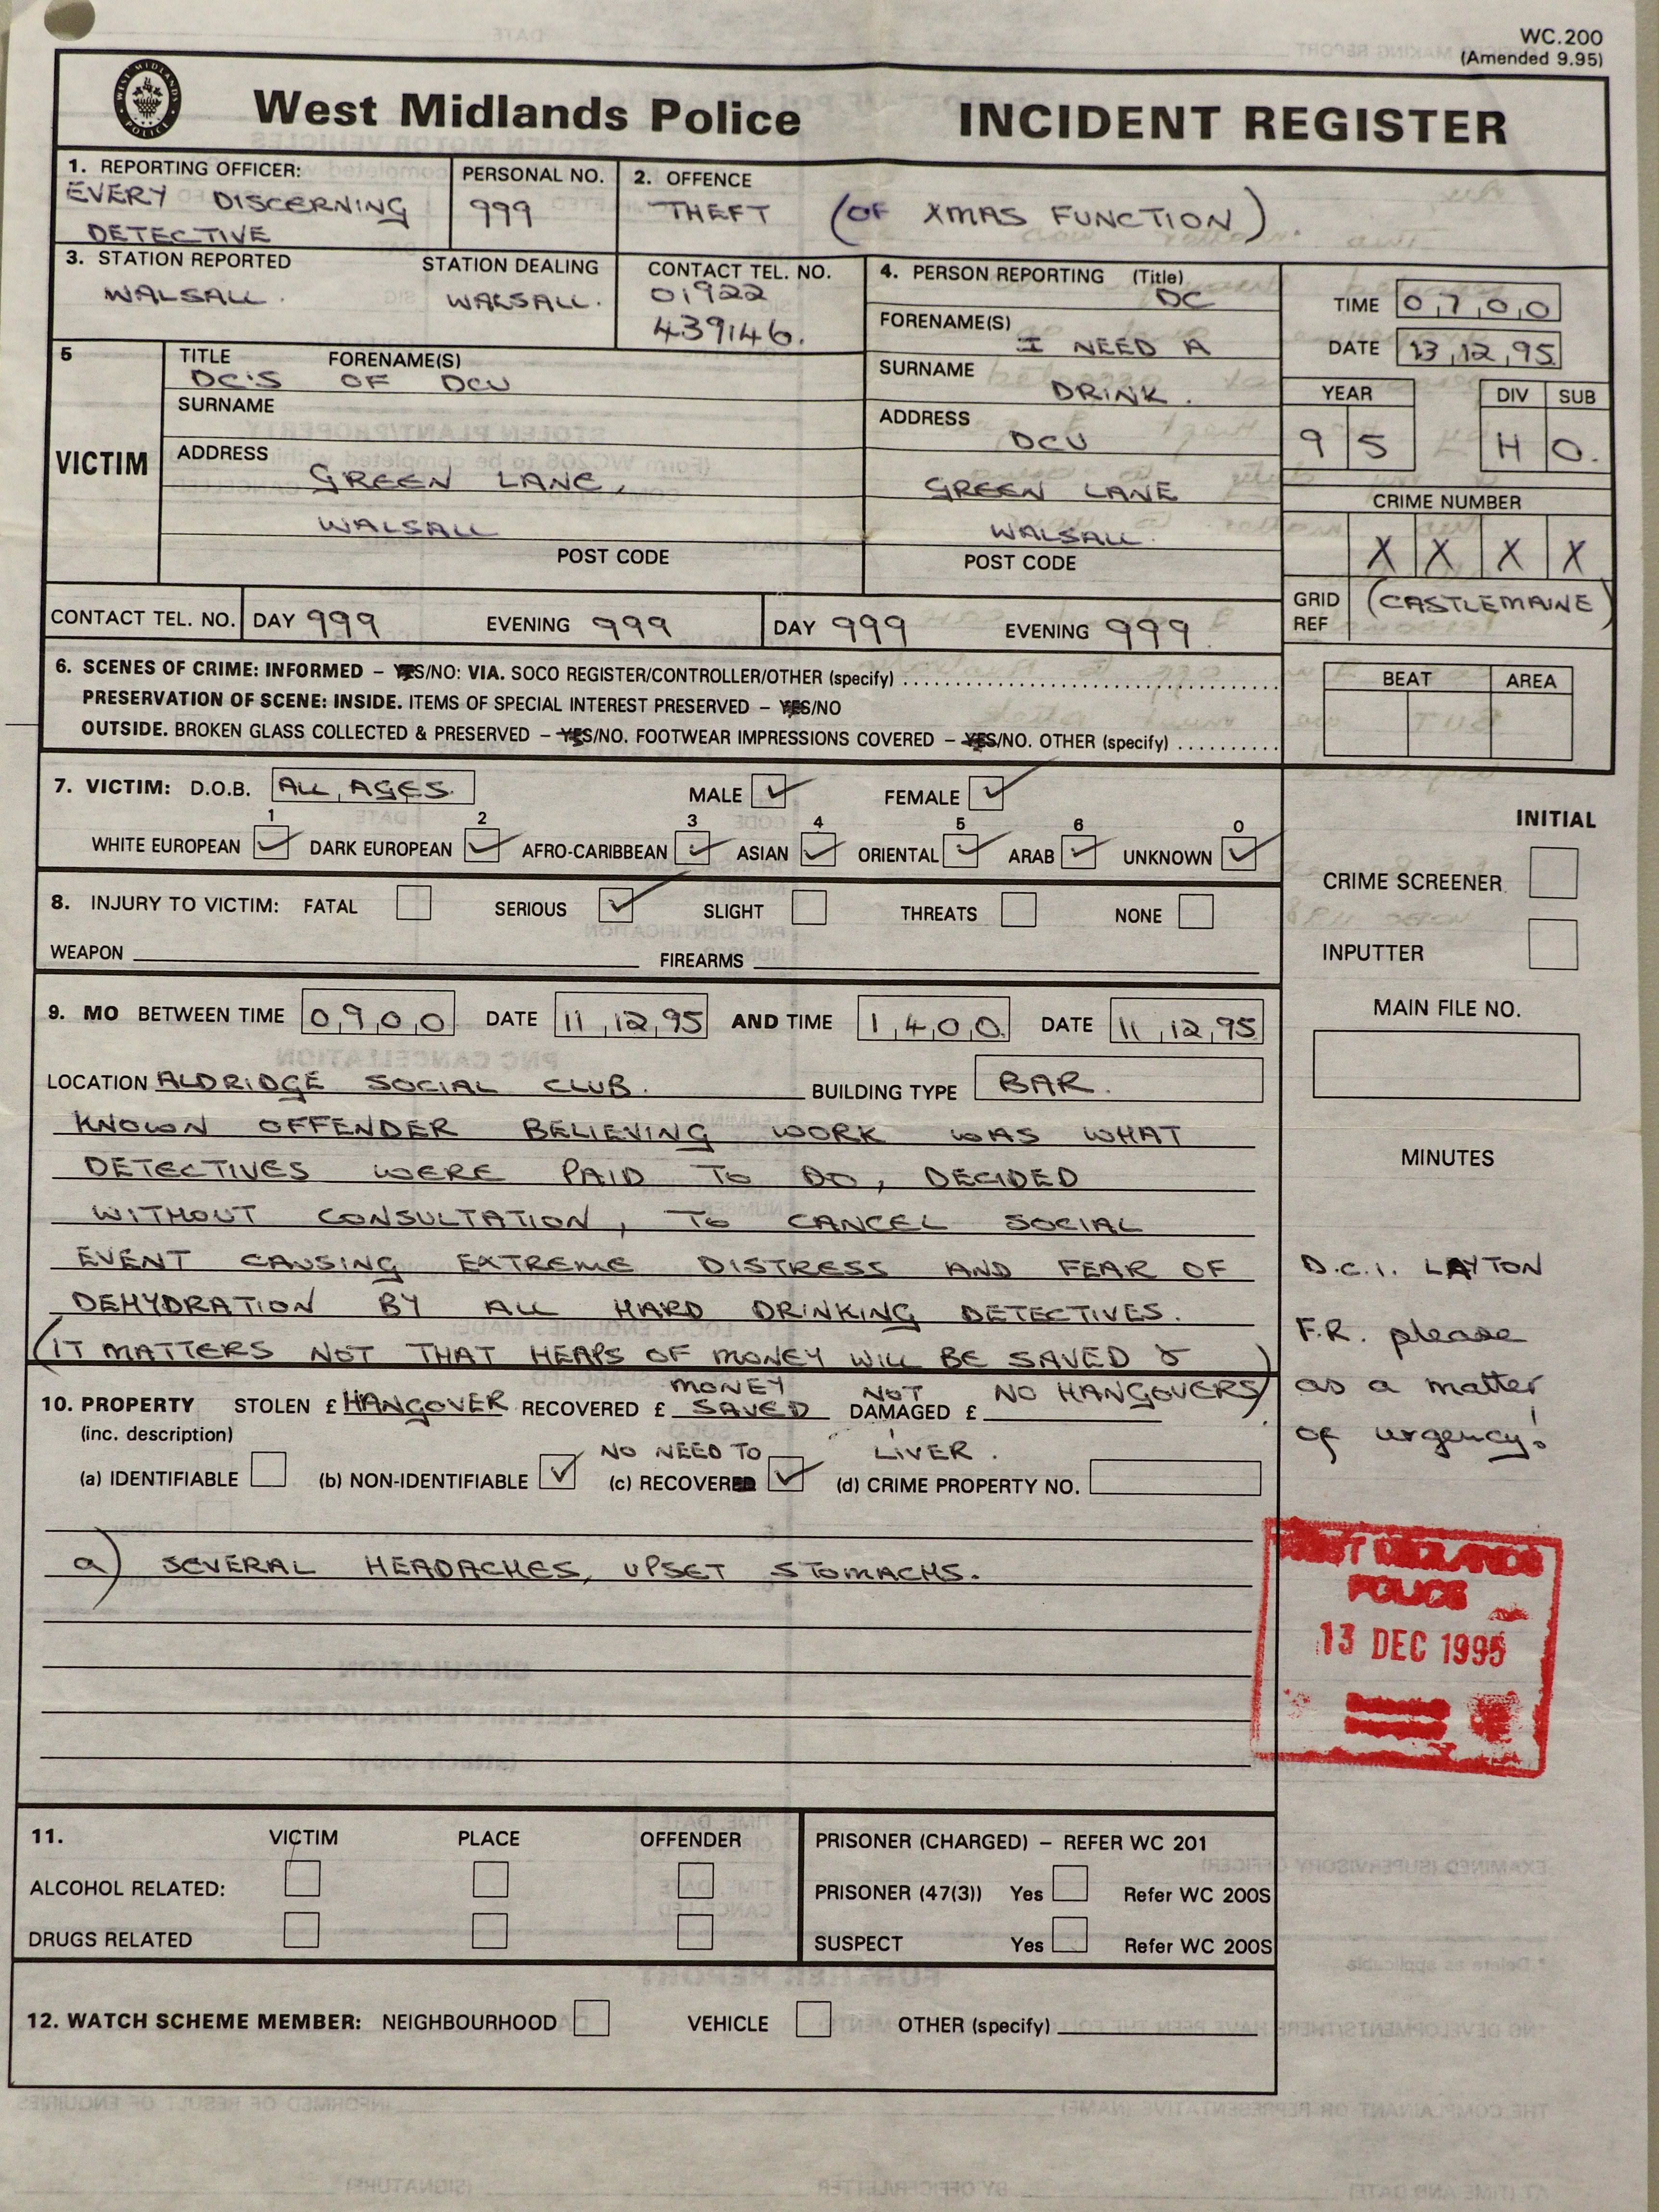 WC.200
(Amended 9.95)
WEST MIDLANDS POLICE
West Midlands Police INCIDENT REGISTER
1. REPORTING OFFICER: PERSONAL NO. 2. OFFENCE
EVERY DISCERNING 999 THEFT (OF XMAS FUNCTION)
DETECTIVE
3. STATION REPORTED STATION DEALING CONTACT TEL. NO. 4. PERSON REPORTING (Title)
WALSALL. WALSALL. 01922 DC TIME 0,7,0,0
439146. FORENAME(S)
I NEED A DATE 13,12,95
5 TITLE FORENAME(S) SURNAME
DC'S OF DCU DRINK. YEAR DIV SUB
SURNAME ADDRESS
DCU 9 5 H O.
VICTIM ADDRESS
GREEN LANE, GREEN LANE CRIME NUMBER
WALSALL WALSALL. X X X X
POST CODE POST CODE
GRID REF (CASTLEMAINE)
CONTACT TEL. NO. DAY 999 EVENING 999 DAY 999 EVENING 999
6. SCENES OF CRIME: INFORMED – YES/NO: VIA. SOCO REGISTER/CONTROLLER/OTHER (specify)
BEAT AREA
PRESERVATION OF SCENE: INSIDE. ITEMS OF SPECIAL INTEREST PRESERVED – YES/NO
OUTSIDE. BROKEN GLASS COLLECTED & PRESERVED – YES/NO. FOOTWEAR IMPRESSIONS COVERED – YES/NO. OTHER (specify)
7. VICTIM: D.O.B. ALL AGES. MALE FEMALE
INITIAL
1 2 3 4 5 6 0
WHITE EUROPEAN DARK EUROPEAN AFRO-CARIBBEAN ASIAN ORIENTAL ARAB UNKNOWN
CRIME SCREENER
8. INJURY TO VICTIM: FATAL SERIOUS SLIGHT THREATS NONE
WEAPON FIREARMS
INPUTTER
MAIN FILE NO.
9. MO BETWEEN TIME 0,9,0,0 DATE 11,12,95 AND TIME 1,4,0,0 DATE 11,12,95
LOCATION ALDRIDGE SOCIAL CLUB. BUILDING TYPE BAR.
KNOWN OFFENDER BELIEVING WORK WAS WHAT
MINUTES
DETECTIVES WERE PAID TO DO, DECIDED
WITHOUT CONSULTATION, TO CANCEL SOCIAL
EVENT CAUSING EXTREME DISTRESS AND FEAR OF
DEHYDRATION BY ALL HARD DRINKING DETECTIVES.
(IT MATTERS NOT THAT HEAPS OF MONEY WILL BE SAVED &
NO HANGOVERS).
D.C.I. LAYTON
F.R. please
as a matter
of urgency!
10. PROPERTY STOLEN £ HANGOVER RECOVERED £ MONEY SAVED NOT DAMAGED £
(inc. description) NO NEED TO LIVER.
(a) IDENTIFIABLE (b) NON-IDENTIFIABLE (c) RECOVERED (d) CRIME PROPERTY NO.
a) SEVERAL HEADACHES, UPSET STOMACHS.
WEST MIDLANDS
POLICE
13 DEC 1995
11. VICTIM PLACE OFFENDER PRISONER (CHARGED) – REFER WC 201
ALCOHOL RELATED: PRISONER (47(3)) Yes Refer WC 200S
DRUGS RELATED SUSPECT Yes Refer WC 200S
12. WATCH SCHEME MEMBER: NEIGHBOURHOOD VEHICLE OTHER (specify)